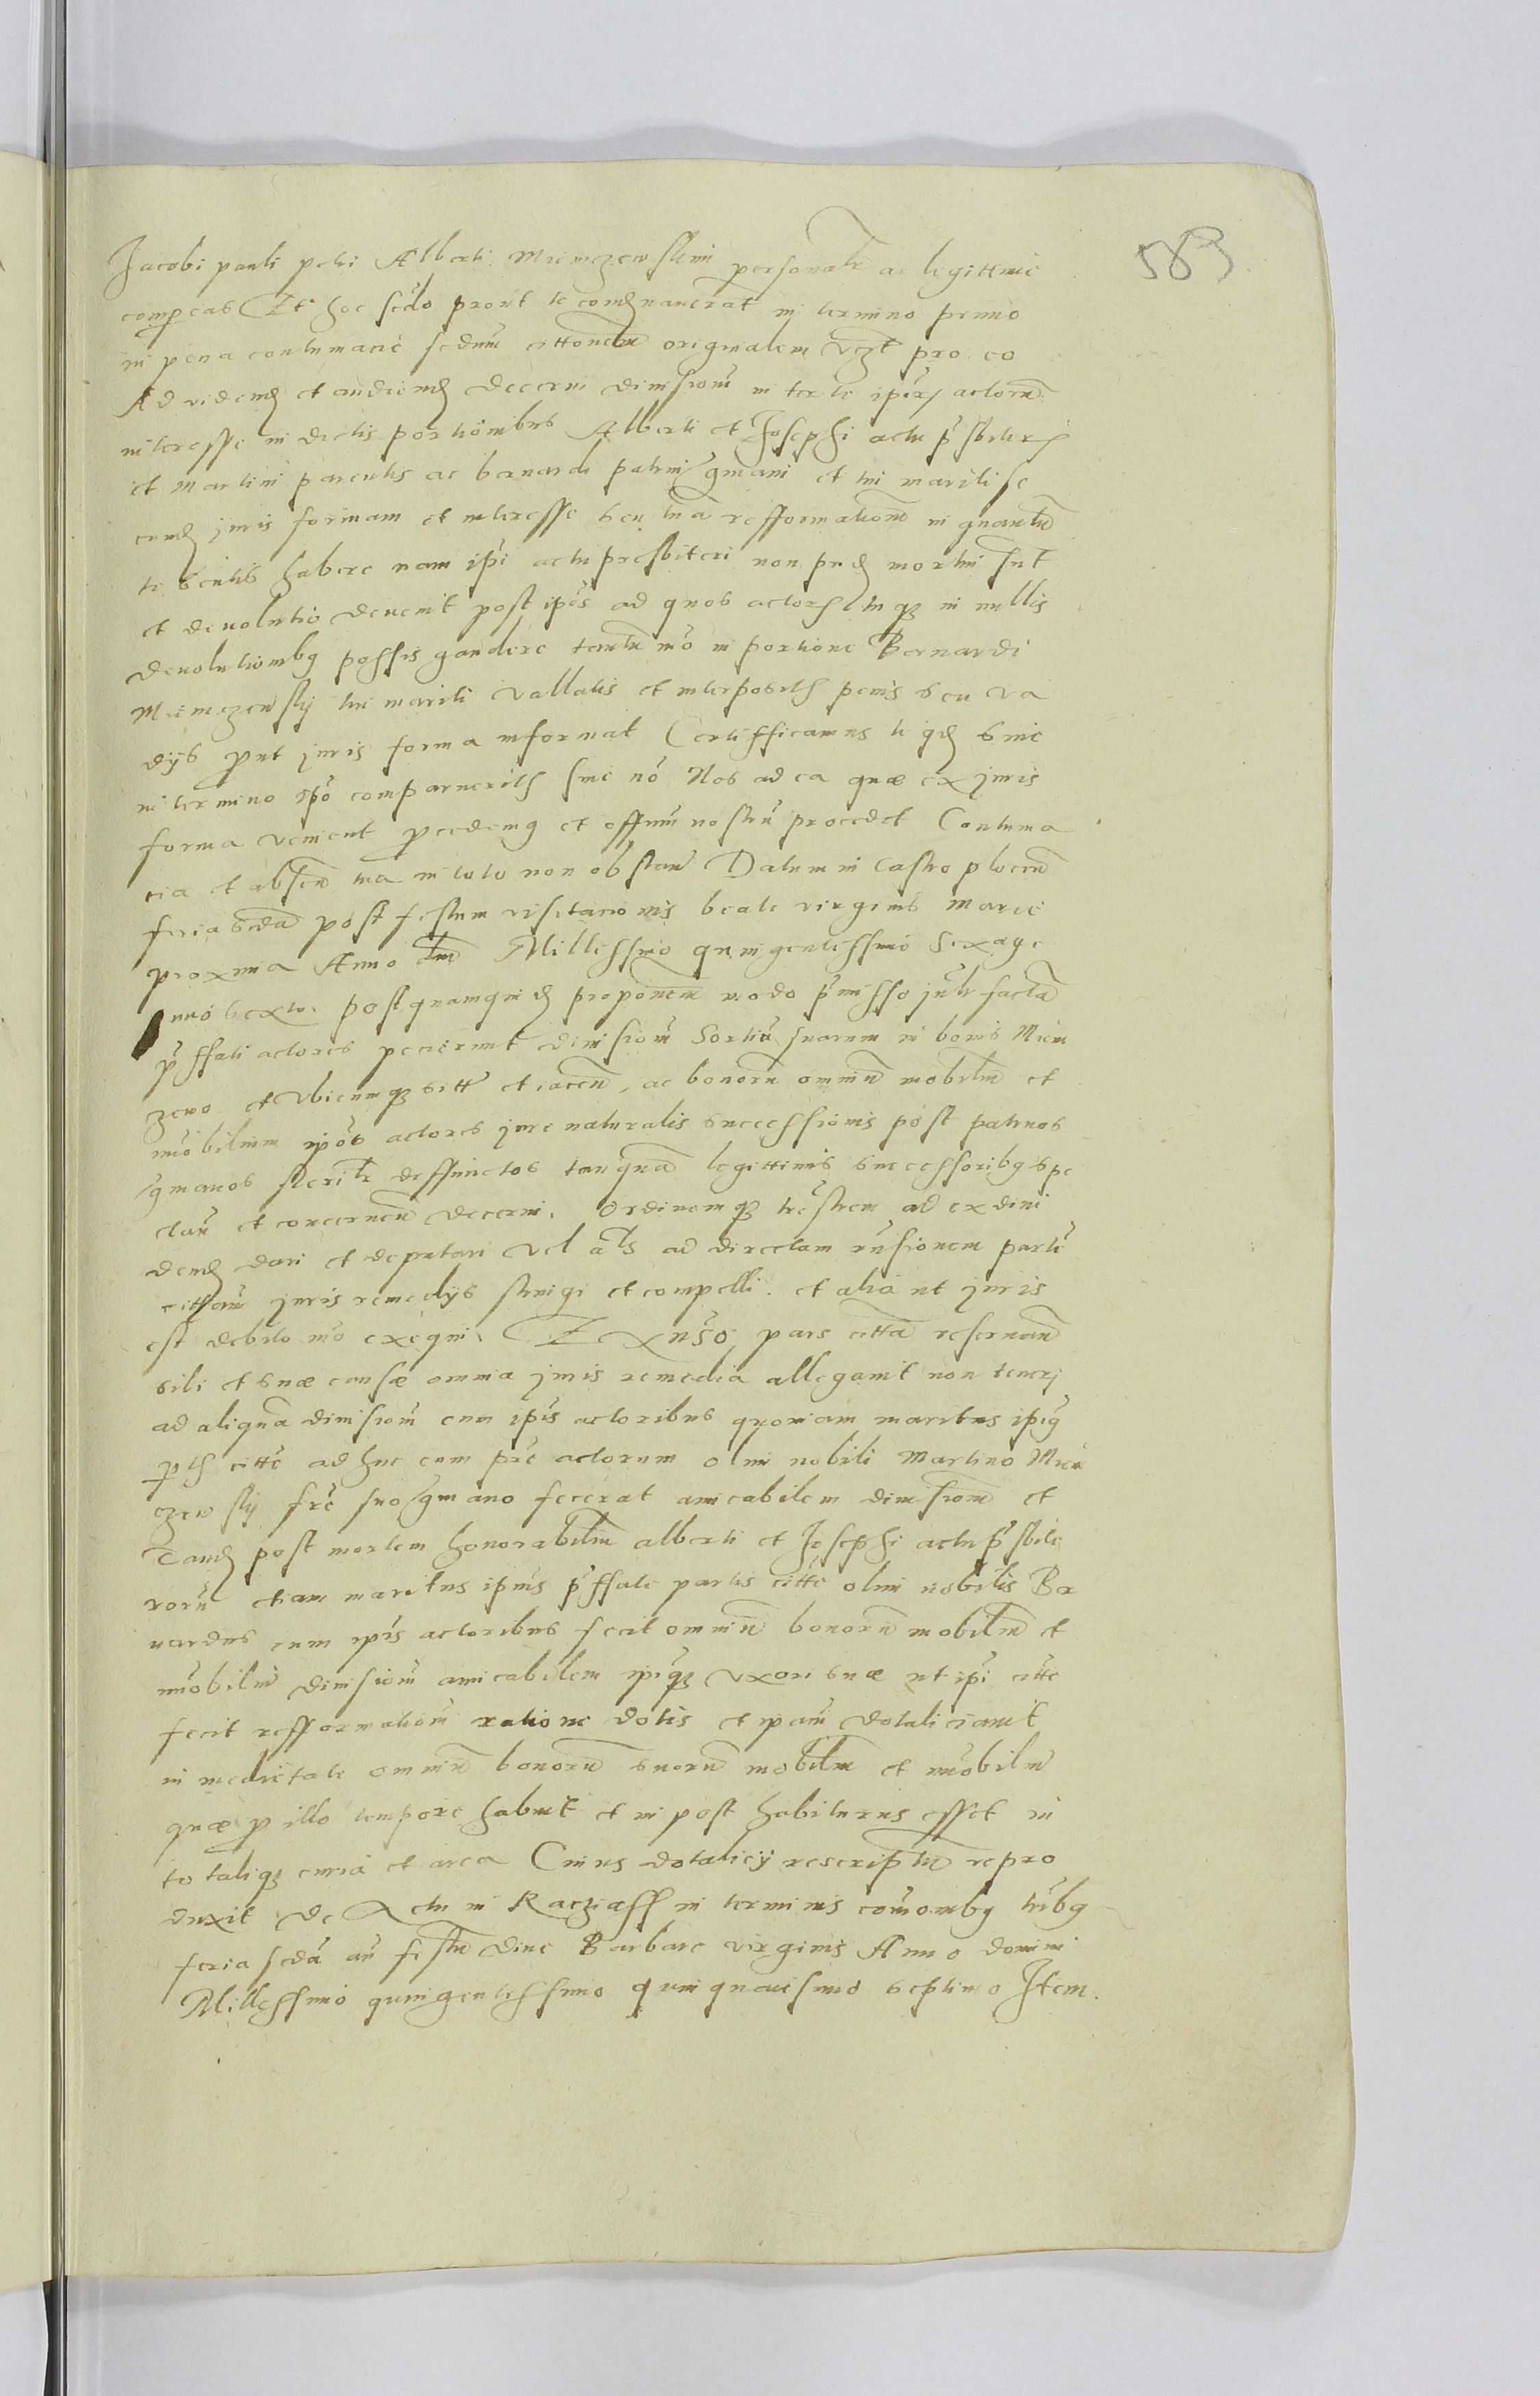 583
Jacobi pauli petri Alberti Miemczewskim personalr ac legittime
compeas Et hoc scdo prout te condemnaverat in termino primo
in pena contumacie scdum cittonem originalem vczt pro eo
Ad vidend et audiend decerni divisionem inter te ipsos actores
interesse in dictis portionibus Alberti et Josephi actu prsbiteros
et Martini parentis ac bernardi patrui gmani et tui mariti se
cund juris formam et interesse seu tua refformationem in quantu
te sentis habere nam ipi actu presbiteri non prid mortui sut
et devolutio devenit post ipos ad quos actores tuqz in nullis
devolutionibq possis gaudere tantu mo in portione Bernardi
Miemczewskij tui mariti vallatis et interpositis penis seu va
dijs prut juris forma informat Certifficamus te qd sive
in termino ipo comparueritis sive no Nos ad ea quæ ex juris
forma venient pcedemq et offium nostru procedet Contuma
cia et absen tua in toto non obstan Datum in Castro plocen
feria scda post festum visitacionis beate virginis Marie
proxima Anno dni Millessimo quingentessimo sexage
simo sexto. postquamquid proponem modo prmisso jur facta
prffati actores pecierunt divisionem sortiu suarum in bonis Miem
czewo et ubicumqz sitt et iacen, ac bonoru omniu mobiliu et
imobilium ipos actores jure naturalis successionis post patruos
gmanos sterilr deffunctos tanquam legittimis successoribq spe
ctan et concernen decerni. Ordinemqz trestrem ad exdivi
dend dari et deputari vel als ad directam divisionem parte
cittam juris remedijs stringi et compelli. et alia ut juris
est debito mo exequi. Ex adverso pars citta reservan
sibi et suæ causæ omnia juris remedia allegavit non teneri
ad aliqua divisionem cum ipis actoribus quoniam maritus ipiq
ptis citte adhuc cum pre actorum olim nobili Martino Miem
czewskij fre suo gmano fecerat amicabilem divisionem et
Tand post mortem honorabiliu alberti et Josephi actu prsbite
roru etiam maritus ipius prffate partis citte olim nobilis Be
nardus cum ipis actoribus fecit omniu bonoru mobiliu et
imobiliu divisionem amicabilem ipiqz uxori suæ ut ipi citte
fecit refformationem ratione dotis et ipam dotaliciavit
in medietate omniu bonoru suoru mobiliu et imobiliu
quæ p illo tempore habuit et in post habiturus esset in
totaliqz curia et area Cuius dotalicij rescriptu repro
duxit de Actu in Racziass in terminis comonibq tribq
feria scda an festu dive Barbare virginis Anno domini
Millessimo quingentessimo quinquaiesimo septimo Item.